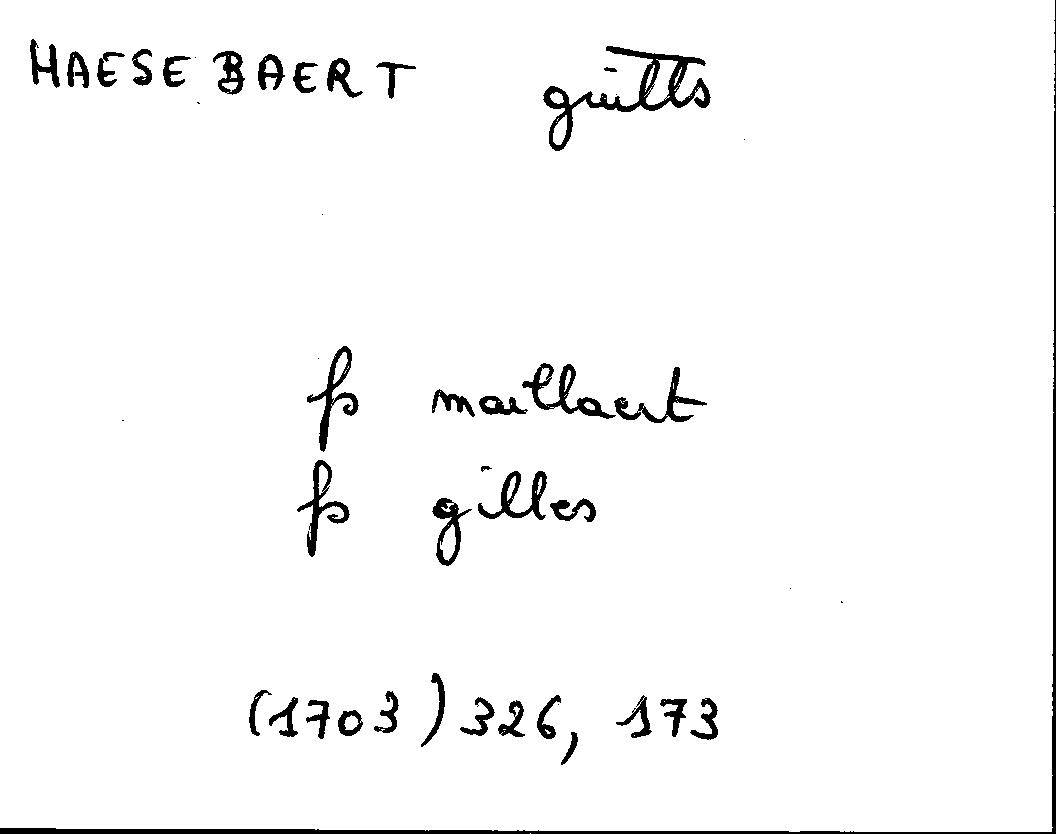 HAESEBAERT guills
fs maillaert
fs gilles
(1703) 326, 173